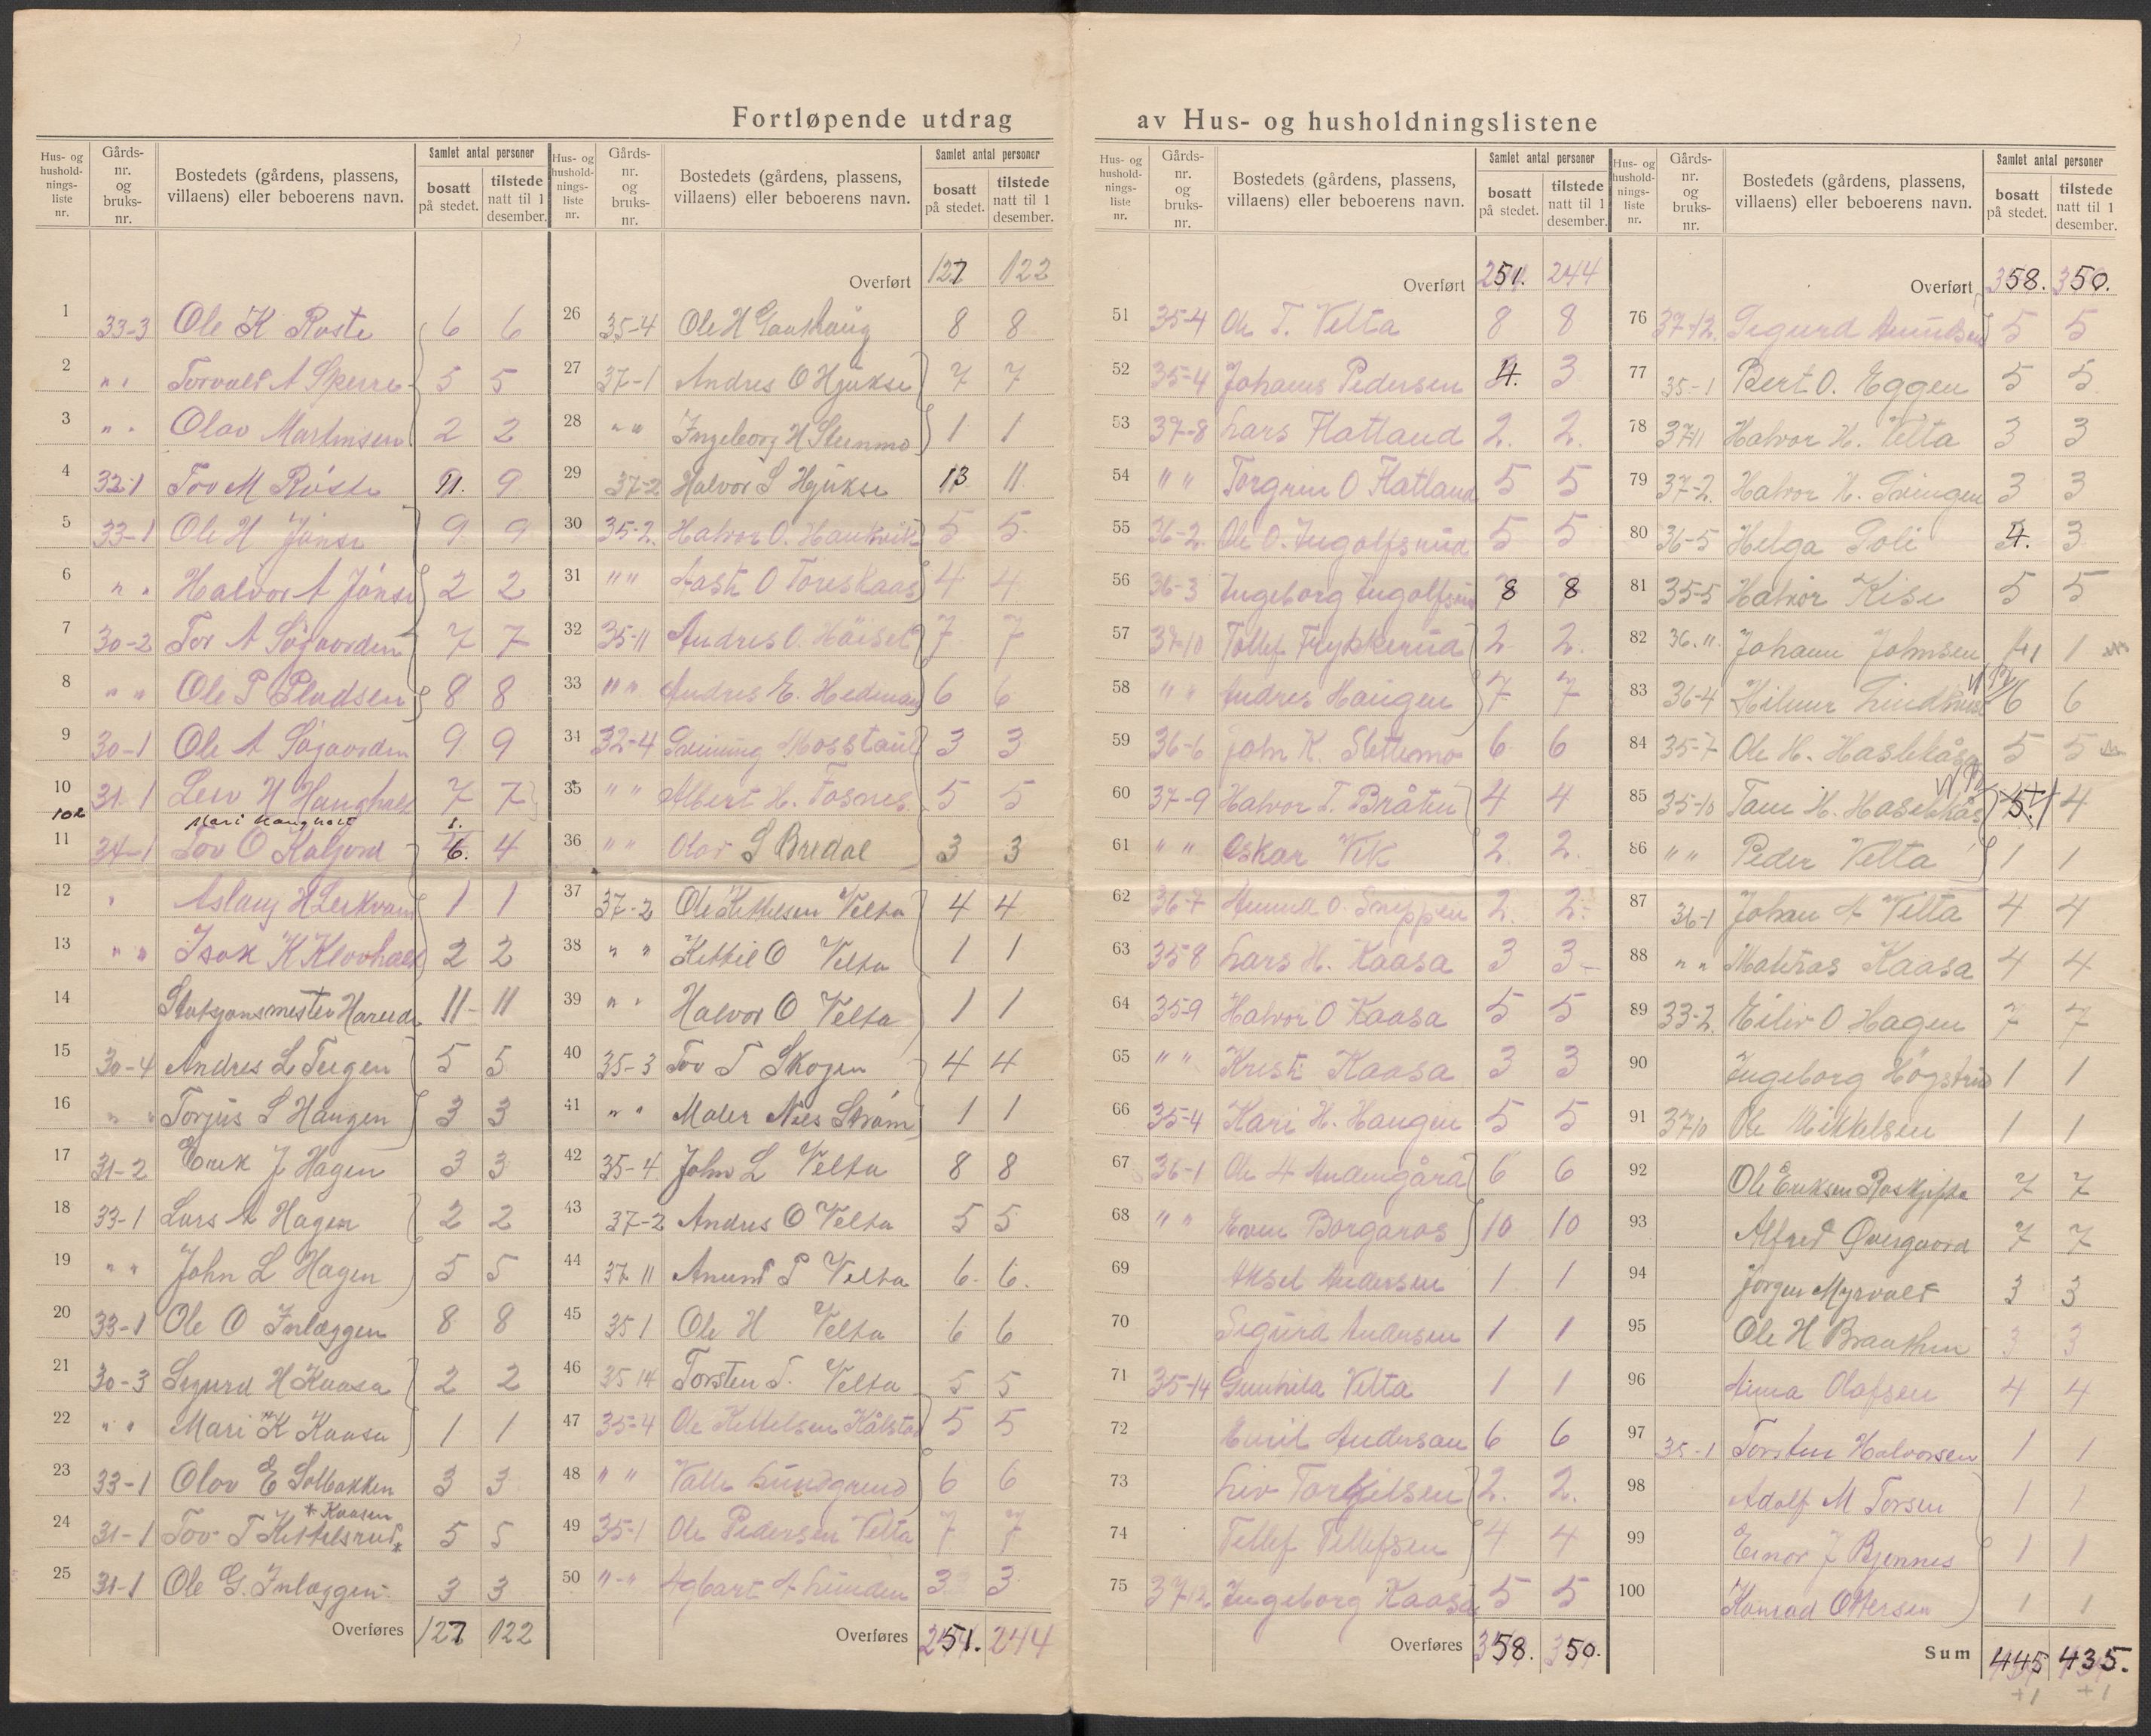 Fortløpende utdrag av Hus- og husholdningslistene
Hus- og husholdnings- liste nr. | Gårds- nr. og bruks- nr. | Bostedets (gårdens, plassens, villaens) eller beboerens navn. | Samlet antal personer: bosatt på stedet. | tilstede natt til 1 desember.
1 33-3 Ole K Roste 6 6
2 " " Torvald A Sperre 5 5
3 " " Olav Martinsen 2 2
4 32-1 Tov M Röste 11. 9
5 33-1 Ole H Jönse 9 9
6 " " Halvor A Jönse 2 2
7 30-2 Tor A Sögaarden 7 7
8 " " Ole P Pladsen 8 8
9 30-1 Ole A Sögaarden 9 9
10 31-1 Leiv H Haugholt 7 7
102 Mari Haugholt 1.
11 34-1 Tov O Kaljord 6. 4
12 " Aslaug H Leekvam 1 1
13 " " Isak K Klovholt 2 2
14 Statsjonsmester Harud 11 11
15 30-4 Andres L Teigen 5 5
16 " " Torjus S Haugen 3 3
17 31-2 Erik J Hagen 3 3
18 33-1 Lars A Hagen 2 2
19 " " John L Hagen 5 5
20 33-1 Ole O Inlæggen 8 8
21 30-3 Sigurd H Kaasa 2 2
22 " " Mari K Kaasa 1 1
23 33-1 Olav E Solbakken 3 3
* Kaasen
24 31-1 Tov T Kittelsrud * 5 5
25 31-1 Ole G. Inlæggen 3 3
Overføres 127 122
Overført 127 122
26 35-4 Ole H Gaashaug 8 8
27 37-1 Andres O Hjukse 7 7
28 " " Ingeborg H Steinmo 1 1
29 37-2 Halvor S Hjukse 13 11
30 35-2. Halvor O. Haukvik 5 5
31 " " Aaste O Toreskaas 4 4
32 35-11 Andres O. Höiset 7 7
33 " " Andres E. Hedman 6 6
34 32-4 Sveinung Mosstaul 3 3
35 " " Albert H. Fosnes. 5 5
36 " " Olav S Bredal 3 3
37 37-2 Ole Kittelsen Velta 4 4
38 " " Kittil O Velta 1 1
39 " " Halvor O Velta 1 1
40 35-3 Tov T Skogen 4 4
41 " " Maler Nils Strøm 1 1
42 35-4 John L Velta 8 8
43 37-2 Andres O Velta 5 5
44 37 11 Anund P Velta 6. 6.
45 35 1 Ole H Velta 6 6
46 35 14 Torsten T. Velta 5 5
47 35-4 Ole Kittelsen Kålstad 5 5
48 " " Valle Lundgrend 6 6
49 35-1 Ole Pedersen Velta 7 7
50 " - " Agbart A Linden 3 3
Overføres 251. 244
Overført 251. 244
51 35-4 Ole T. Velta 8 8
52 35-4 Johans Pedersen 4. 3
53 37-8 Lars Flatland 2. 2.
54 " " Torgrim O Flatland 5 5
55 36-2. Ole O. Ingolfsrud 5 5
56 36-3 Ingeborg Ingolfsrud 8 8
57 37-10 Tollef Frykkerud 2 2.
58 " " Andres Haugen 7 7
59 36-6 John K. Slettemo 6 6
60 37-9 Halvor T. Bråten 4 4
61 " " Oskar Vik 2. 2.
62 36-7 Amund O. Sneppen 2. 2.
63 35 8 Lars H. Kaasa 3 3
64 35-9 Halvor O Kaasa 5 5
65 " " Kristi Kaasa 3 3
66 35-4 Kari H. Haugen 5 5
67 36-1 Ole A Andengård 6 6
68 " " Even Borgaras 10 10
69 Aksel Andersen 1 1
70 Sigurd Andersen 1 1
71 35-14 Gunhild Velta 1 1
72 Emil Andersen 6 6
73 Liv Torkjelsen 2. 2.
74 Tellef Tellefsen 4 4
75 37 12 Ingeborg Kaasa 5 5
Overføres 358. 350.
Overført 358. 350.
76 37-12. Sigurd Amundsen 5 5
77 35-1 Bert O. Eggen 5 5
78 37 11 Halvor H. Velta 3 3
79 37-2. Halvor H. Svingen 3 3
80 36-5 Helga Soli 4. 3
81 35-5 Halvor Kise 5 5
82 36. 11. Johann Johnsen 1 1
83 36-4 Hilmar Lindkvist 6 6
84 35-7 Ole H. Haslekåsa 5 5
85 35-10 Tani H. Haslekås 5. 4
86 " " Peder Velta 1 1
87 36-1 Johan A Velta 4 4
88 " " Mathias Kaasa 4 4
89 33-2. Eiliv O. Hagen 7 7
90 Ingeborg Högstrud 1 1
91 37 10 Ole Mikkelsen 1 1
92 Ole Eriksen Raskjifta 7 7
93 Alfred Overgaard 7 7
94 Jörgen Myrvold 3 3
95 Ole H Braathen 3 3
96 Anna Olafsen 4 4
97 35-1 Torsten Halvorsen 1 1
98 Adolf M Torsen 1 1
99 Einor J Bjennes 1 1
100 Konrad Ottersen 1 1
Sum 445 435.
+1 +1